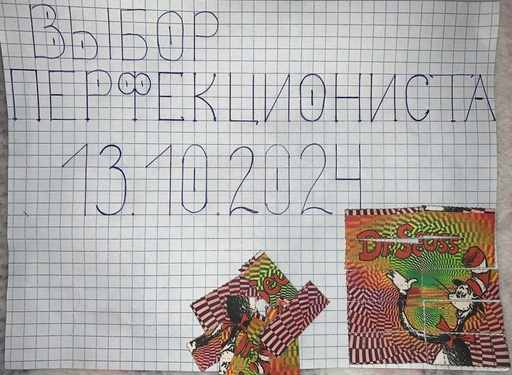 ВЫБОР
ПЕРФЕКЦИОНИСТА
13.10.2024
DR. SEUSS